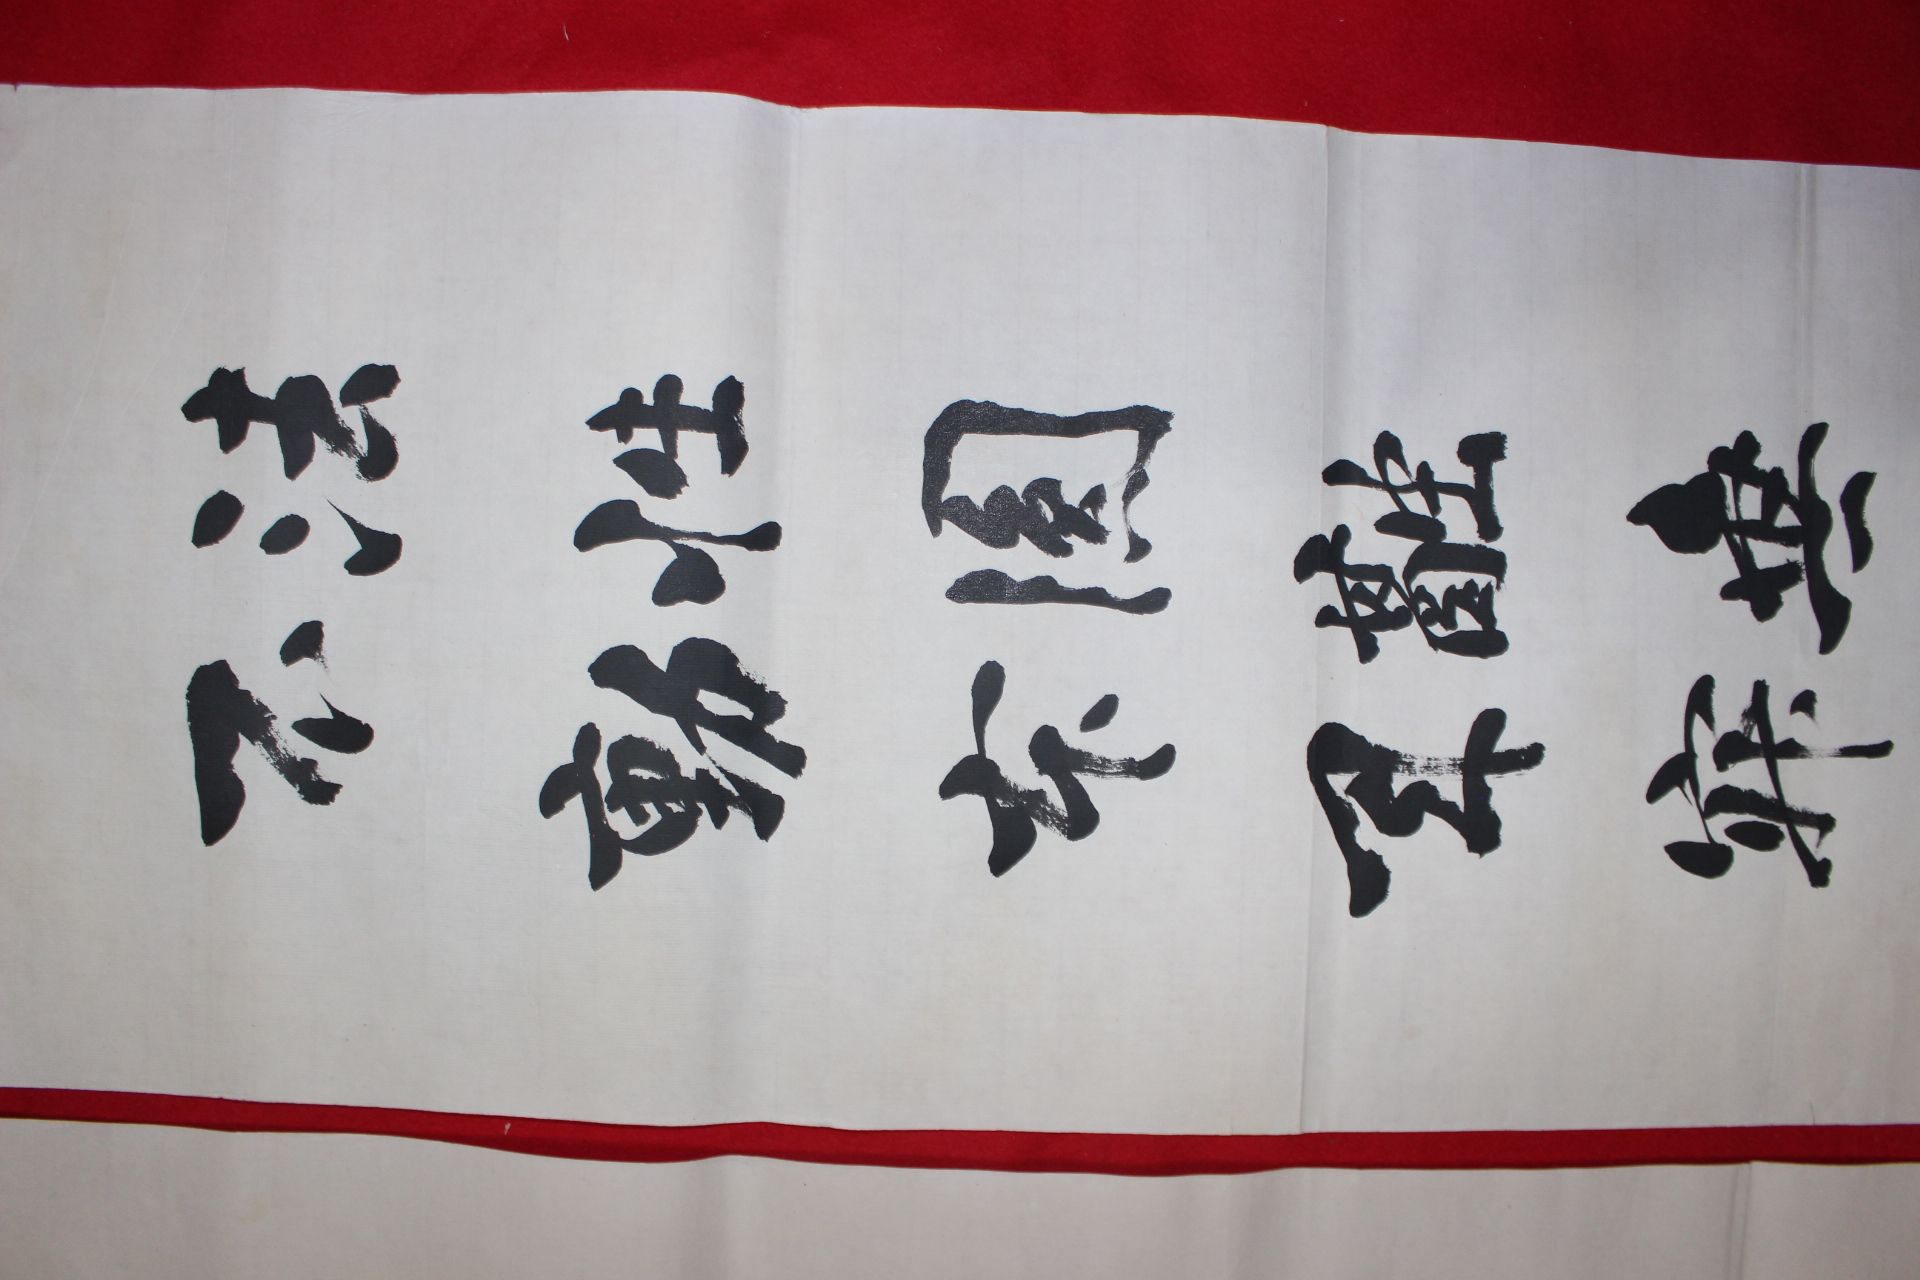 法性圓融無
不動本來寂